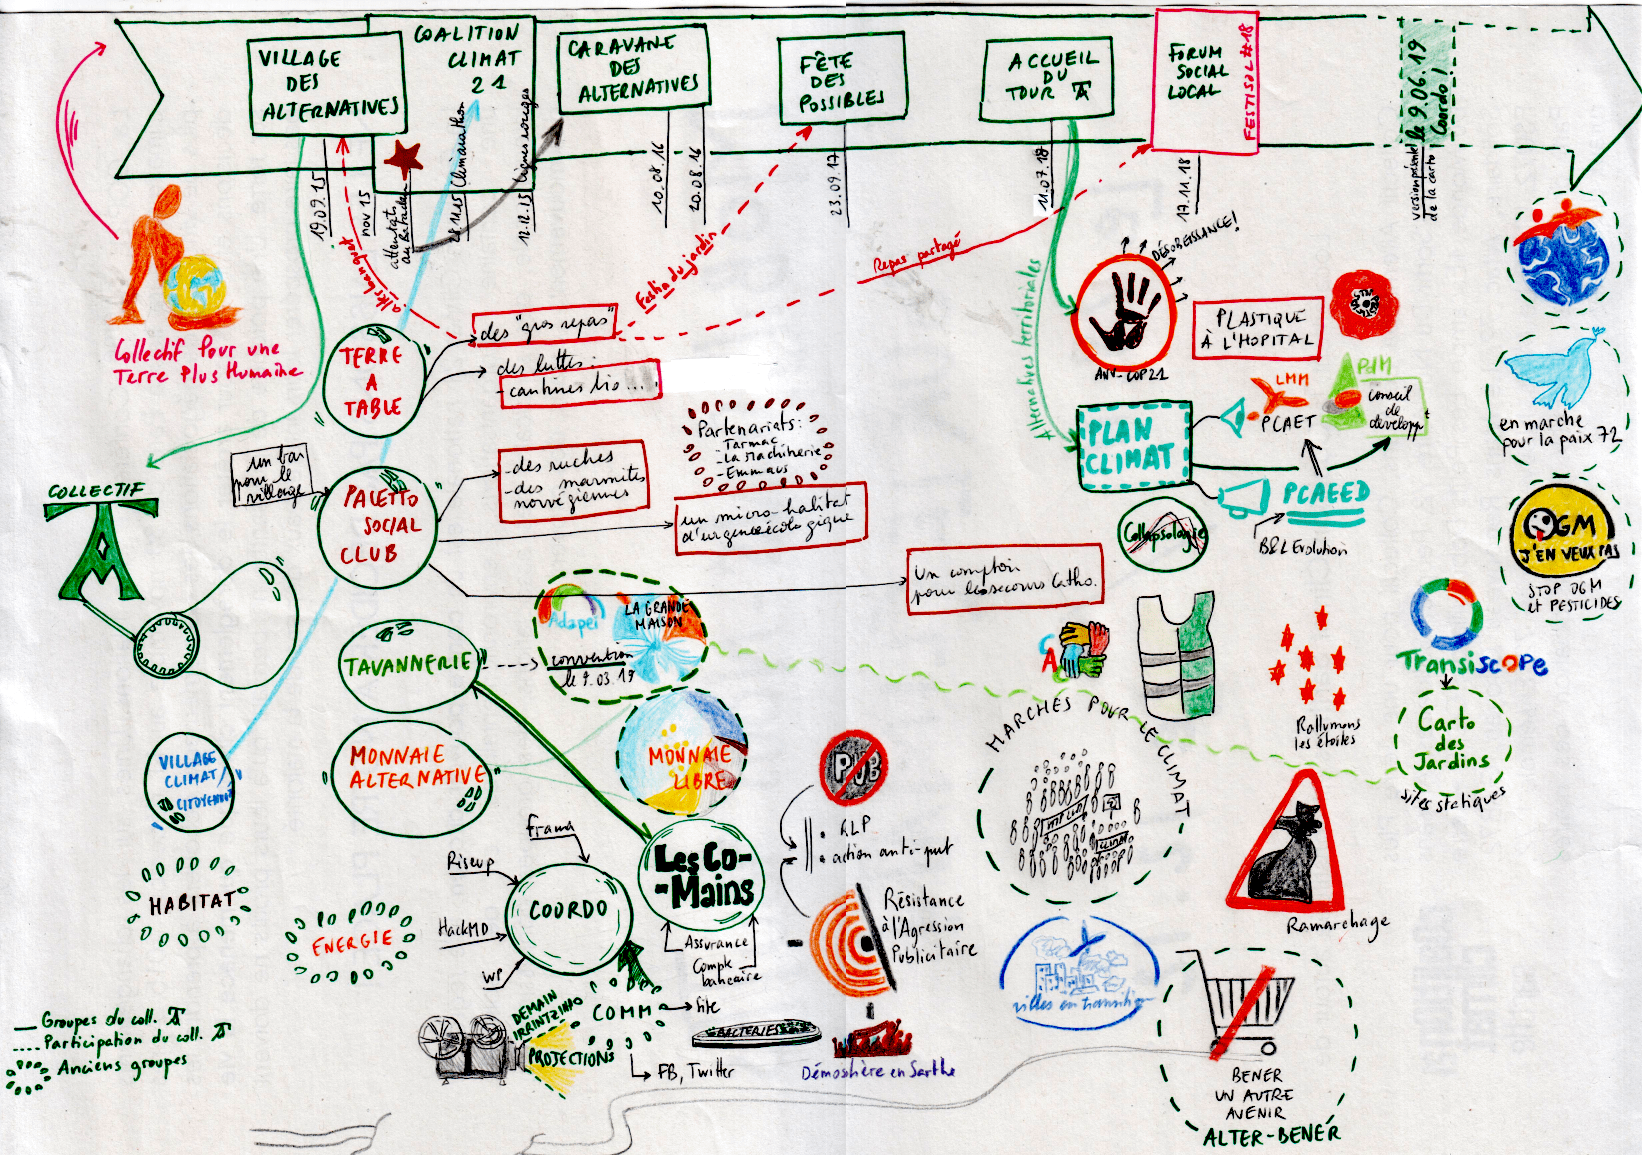 VILLAGE
DES
ALTERNATIVES
COALITION
CLIMAT
21
CARAVANE
DES
ALTERNATIVES
FÊTE
DES
POSSIBLES
ACCUEIL
DU
TOUR
FORUM
SOCIAL
LOCAL
FESTISOL #18
version papier le 9.06.19
de la carto Coordo !
19.09.15
nov 15
attentats
au Bataclan
28.11.15 Climarathon
12.12.15 lignes rouges
10.08.16
20.08.16
23.09.17
11.07.18
17.11.18
Collectif Pour une
Terre Plus Humaine
Festin du jardin
Repas partagé
Alternatives territoriales
DÉSOBEISSANCE!
ANV-COP21
PLASTIQUE
À L'HOPITAL
TERRE
A
TABLE
des "gros repas"
des luttes :
- cantines bio ....
LMM
PCAET
PdM
Conseil
de
développt
PLAN
CLIMAT
PCAEED
B&L Evolution
en marche
pour la paix 72
Partenariats:
- Tarmac
- La Machinerie
- Emmaus
un bar
pour le
village
COLLECTIF
PALETTO
SOCIAL
CLUB
- des ruches
- des marmites
norvégiennes
un micro-habitat
d'urgence écologique
Collapsologie
OGM
J'EN VEUX PAS
STOP OGM
et PESTICIDES
Un comptoir
pour le secours Catho.
Adapei
LA GRANDE
MAISON
convention
le 9.03.19
TAVANNERIE
Transiscope
Carto
des
Jardins
sites statiques
Rallumons
les étoiles
MARCHES POUR LE CLIMAT
VILLAGE
CLIMAT
CITOYENNETÉ
MONNAIE
ALTERNATIVE
MONNAIE
LIBRE
PUB
• RLP
• action anti-pub
Frama
Riseup
HackMD
WP
COORDO
Les Co-
-Mains
Assurance
Compte
bancaire
Résistance
à l'Agression
Publicitaire
HABITAT
ENERGIE
Ramarchage
villes en transition
COMM
site
FB, Twitter
DEMAIN
IRRINTZINA
PROJECTIONS
BACTERIES
Démosphère en Sarthe
Groupes du coll.
Participation du coll.
Anciens groupes
BENER
UN AUTRE
AVENIR
ALTER-BENER